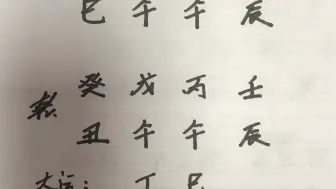 巳 午 午 辰
乾 癸 戊 丙 壬
丑 午 午 辰
大运： 丁 巳